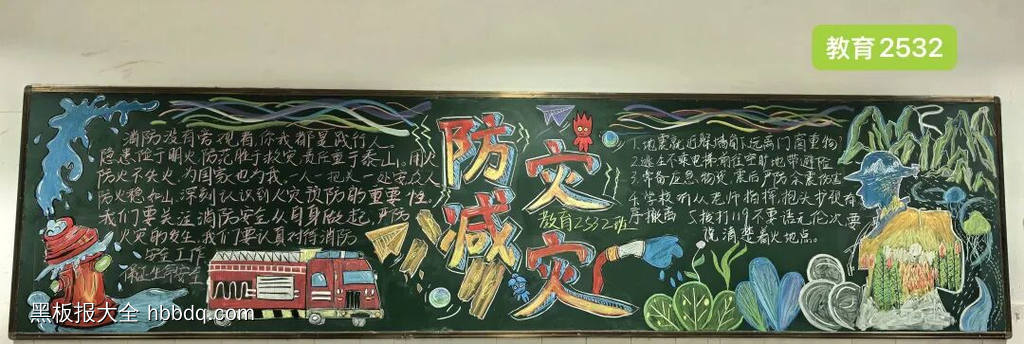 教育2532
消防没有旁观者,你我都是践行人。
隐患险于明火,防范胜于救灾,责任重于泰山。用火
防火不失火,为国家也为我,一人一把火一处安,众人
防火稳如山,深刻认识到火灾预防的重要性,
我们要关注消防安全从自身做起,严防
火灾的发生,我们要认真对待消防
安全工作
保证生命安全
防灾
减灾
教育2532班
1.地震就近躲墙角,远离门窗重物
2.逃生不乘电梯前往空旷地带避险
3.常备应急物资,震后严防余震伤害
4.学校听从老师指挥,抱头护颈有
序撤离 5.拨打119不要语无伦次,要
说清楚着火地点。
黑板报大全 hbbdq.com